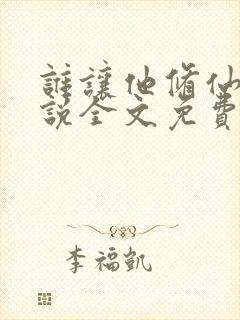 誰讓他脩仙
說全文免費
李福凱